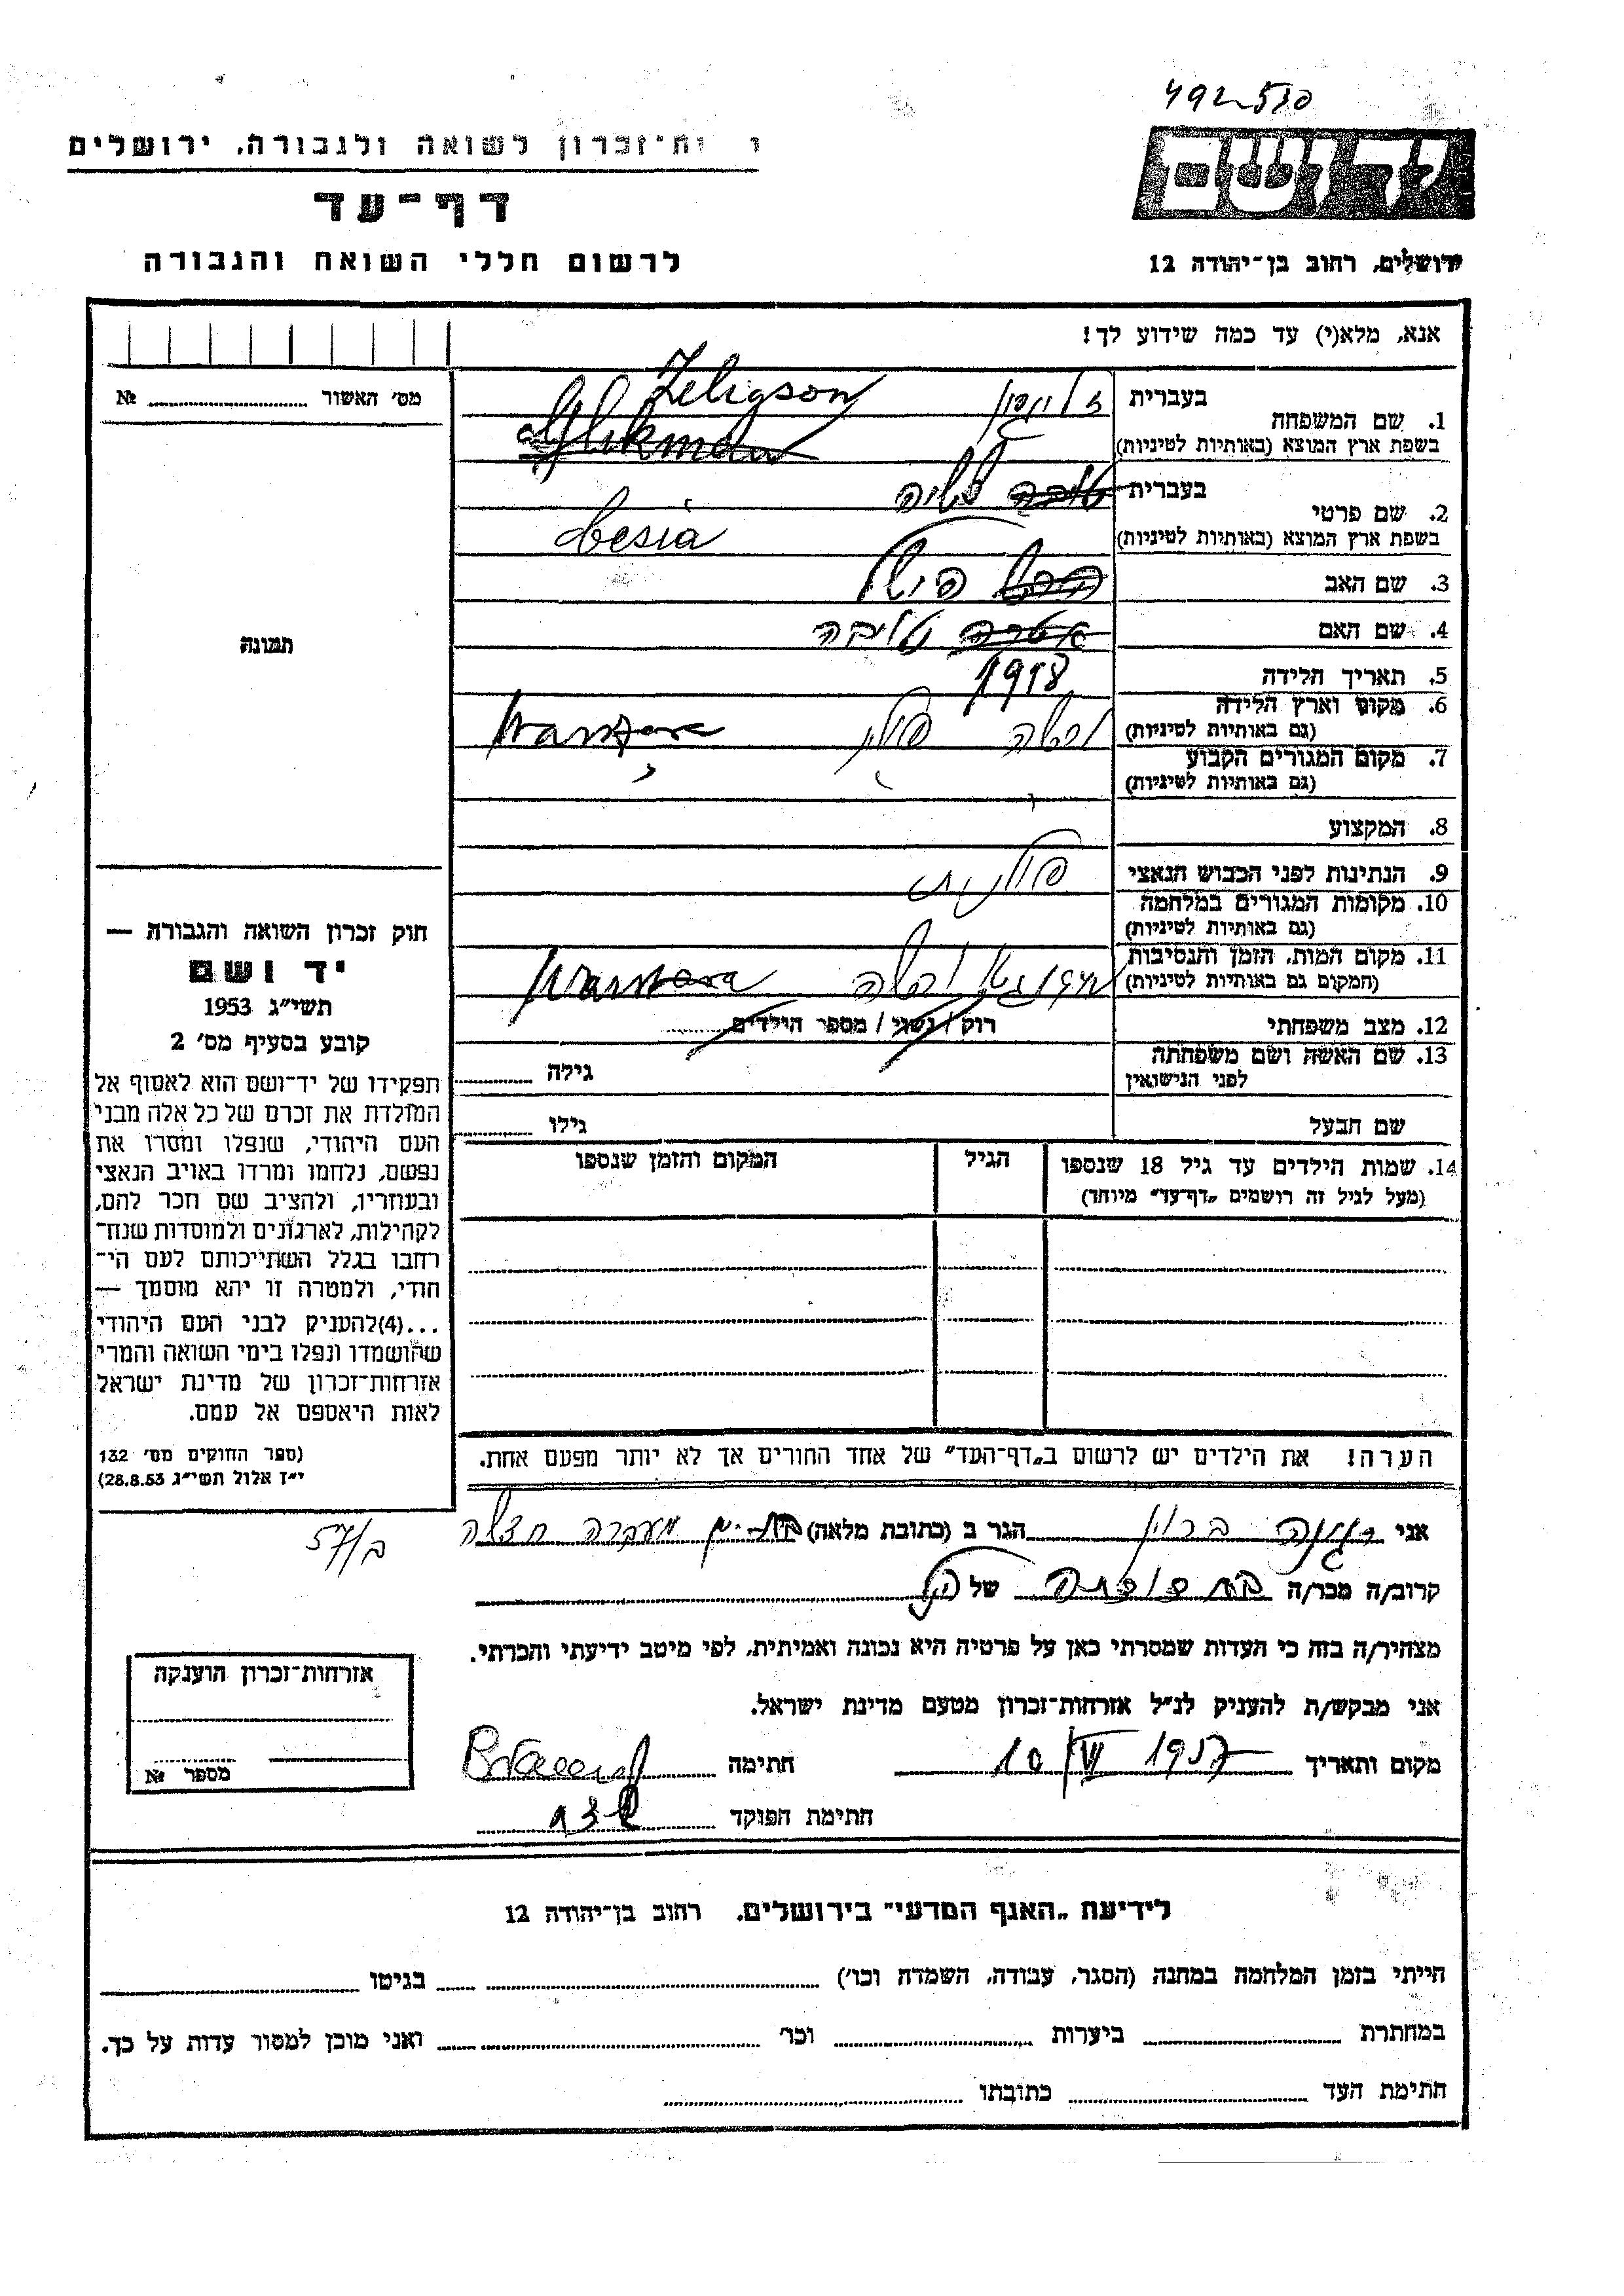 492530
ות־זכרון לשואה ולגבורה, ירושלים
דף־עד
לרשום חללי השואה והגבורה
ירושלים, רחוב בן־יהודה 12
אנא, מלא(י) עד כמה שידוע לך!
מס׳ האשור № 
תמונה
1. שם המשפחה בעברית
Zeligson
בשפת ארץ המוצא (באותיות לטיניות) Glikman
2. שם פרטי בעברית טובה
בשפת ארץ המוצא (באותיות לטיניות) Lesia
3. שם האב פישל
4. שם האם אסתר טויבה
5. תאריך הלידה 1918
6. מקום וארץ הלידה
(גם באותיות לטיניות) ורשה פולין Warszawa
7. מקום המגורים הקבוע
(גם באותיות לטיניות)
8. המקצוע
9. הנתינות לפני הכבוש הנאצי פולנית
10. מקומות המגורים במלחמה
(גם באותיות לטיניות)
11. מקום המות, הזמן והנסיבות
(המקום גם באותיות לטיניות) ורשה Warszawa
12. מצב משפחתי רוק / נשוי / מספר הילדים
13. שם האשה ושם משפחתה
לפני הנישואין גילה
שם הבעל גילו
14. שמות הילדים עד גיל 18 שנספו הגיל המקום והזמן שנספו
(מעל לגיל זה רושמים „דף־עד״ מיוחד)
הערה! את הילדים יש לרשום ב„דף־העד״ של אחד ההורים אך לא יותר מפעם אחת.
חוק זכרון השואה והגבורה —
יד ושם
תשי״ג 1953
קובע בסעיף מס׳ 2
תפקידו של יד־ושם הוא לאסוף אל
המולדת את זכרם של כל אלה מבני
העם היהודי, שנפלו ומסרו את
נפשם, נלחמו ומרדו באויב הנאצי
ובעוזריו, ולהציב שם וזכר להם,
לקהילות, לארגונים ולמוסדות שנח־
רבו בגלל השתייכותם לעם הי־
הודי, ולמטרה זו יהא מוסמך —
...(4)להעניק לבני העם היהודי
שהושמדו ונפלו בימי השואה והמרי
אזרחות־זכרון של מדינת ישראל
לאות היאספם אל עמם.
(ספר החוקים מס׳ 132
י״ז אלול תשי״ג 28.8.53)
אני ברוין הגר ב (כתובת מלאה) בת-ים מעברה
57/ב
קרוב/ה מכר/ה בת דודה של
מצהיר/ה בזה כי העדות שמסרתי כאן על פרטיה היא נכונה ואמיתית, לפי מיטב ידיעתי והכרתי.
אני מבקש/ת להעניק לנ״ל אזרחות־זכרון מטעם מדינת ישראל.
מקום ותאריך 10/VI 1957 חתימה
חתימת הפוקד
אזרחות־זכרון הוענקה
מספר №
לידיעת „האגף המדעי״ בירושלים, רחוב בן־יהודה 12
הייתי בזמן המלחמה במחנה (הסגר, עבודה, השמדה וכו׳) בגיטו
במחתרת ביערות וכו׳ ואני מוכן למסור עדות על כך.
חתימת העד כתובתו